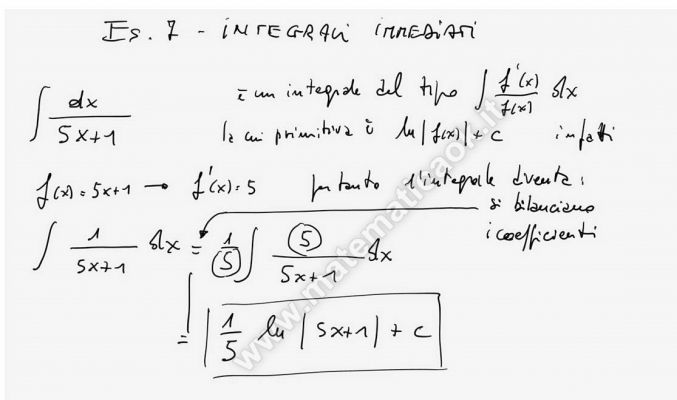 Es. 7 - INTEGRALI IMMEDIATI
∫ dx/(5x+1) è un integrale del tipo ∫ f'(x)/f(x) dx
la cui primitiva è ln|f(x)| + c infatti
f(x) = 5x+1 → f'(x) = 5 pertanto l'integrale diventa:
si bilanciano
i coefficienti
∫ 1/(5x+1) dx = 1/5 ∫ 5/(5x+1) dx
= 1/5 ln |5x+1| + c
www.matematicaok.it